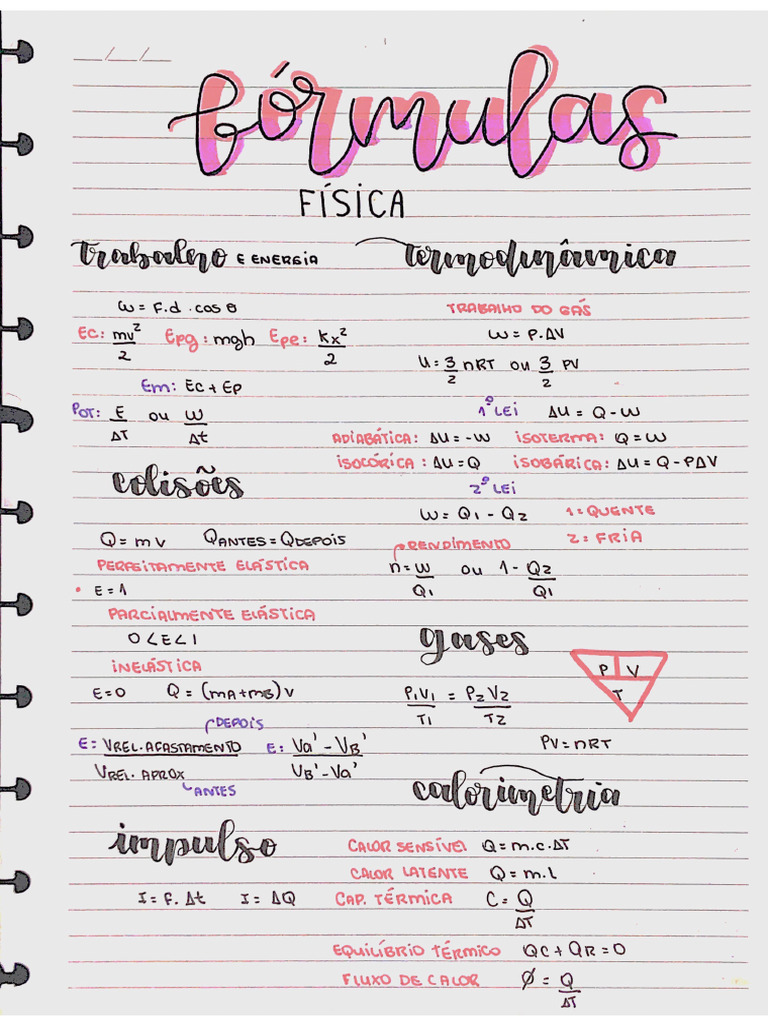 / /
fórmulas
FÍSICA
trabalho E ENERGIA
W = F.d . cos θ
Ec: mv²/2 Epg: mgh Epe: kx²/2
Em: Ec + Ep
POT: E/ΔT ou W/Δt
colisões
Q = m v QANTES = QDEPOIS
PERFEITAMENTE ELÁSTICA
• E = 1
PARCIALMENTE ELÁSTICA
0 < E < 1
INELÁSTICA
E = 0 Q = (mA + mB) V
DEPOIS
E: VREL. AFASTAMENTO/VREL. APROX E: Va' - VB'/VB' - Va'
ANTES
impulso
I = F. Δt I = ΔQ
termodinâmica
TRABALHO DO GÁS
W = P.ΔV
U = 3/2 nRT ou 3/2 PV
1º LEI ΔU = Q - W
ADIABÁTICA: ΔU = -W ISOTERMA: Q = W
ISOCÓRICA: ΔU = Q ISOBÁRICA: ΔU = Q - PΔV
2º LEI
W = Q1 - Q2 1 = QUENTE
2 = FRIA
RENDIMENTO
n = W/Q1 ou 1 - Q2/Q1
gases
P V
T
P1V1/T1 = P2V2/T2
PV = nRT
calorimetria
CALOR SENSÍVEL Q = m.c.ΔT
CALOR LATENTE Q = m.l
CAP. TÉRMICA C = Q/ΔT
EQUILÍBRIO TÉRMICO QC + QR = 0
FLUXO DE CALOR Ø = Q/ΔT